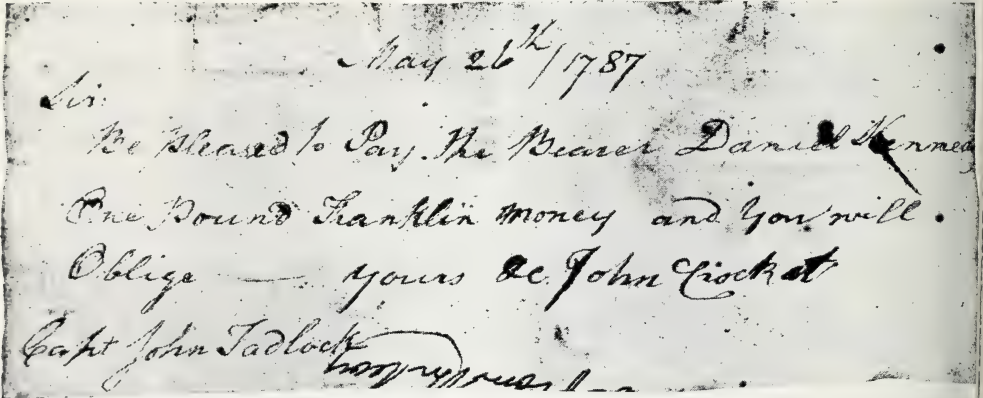 May 26th/1787
Sir
Be pleased to Pay the Bearer Daniel Kennedy
One Pound Franklin money and you will
Oblige — yours &c John Crockat
Capt John Tadlock